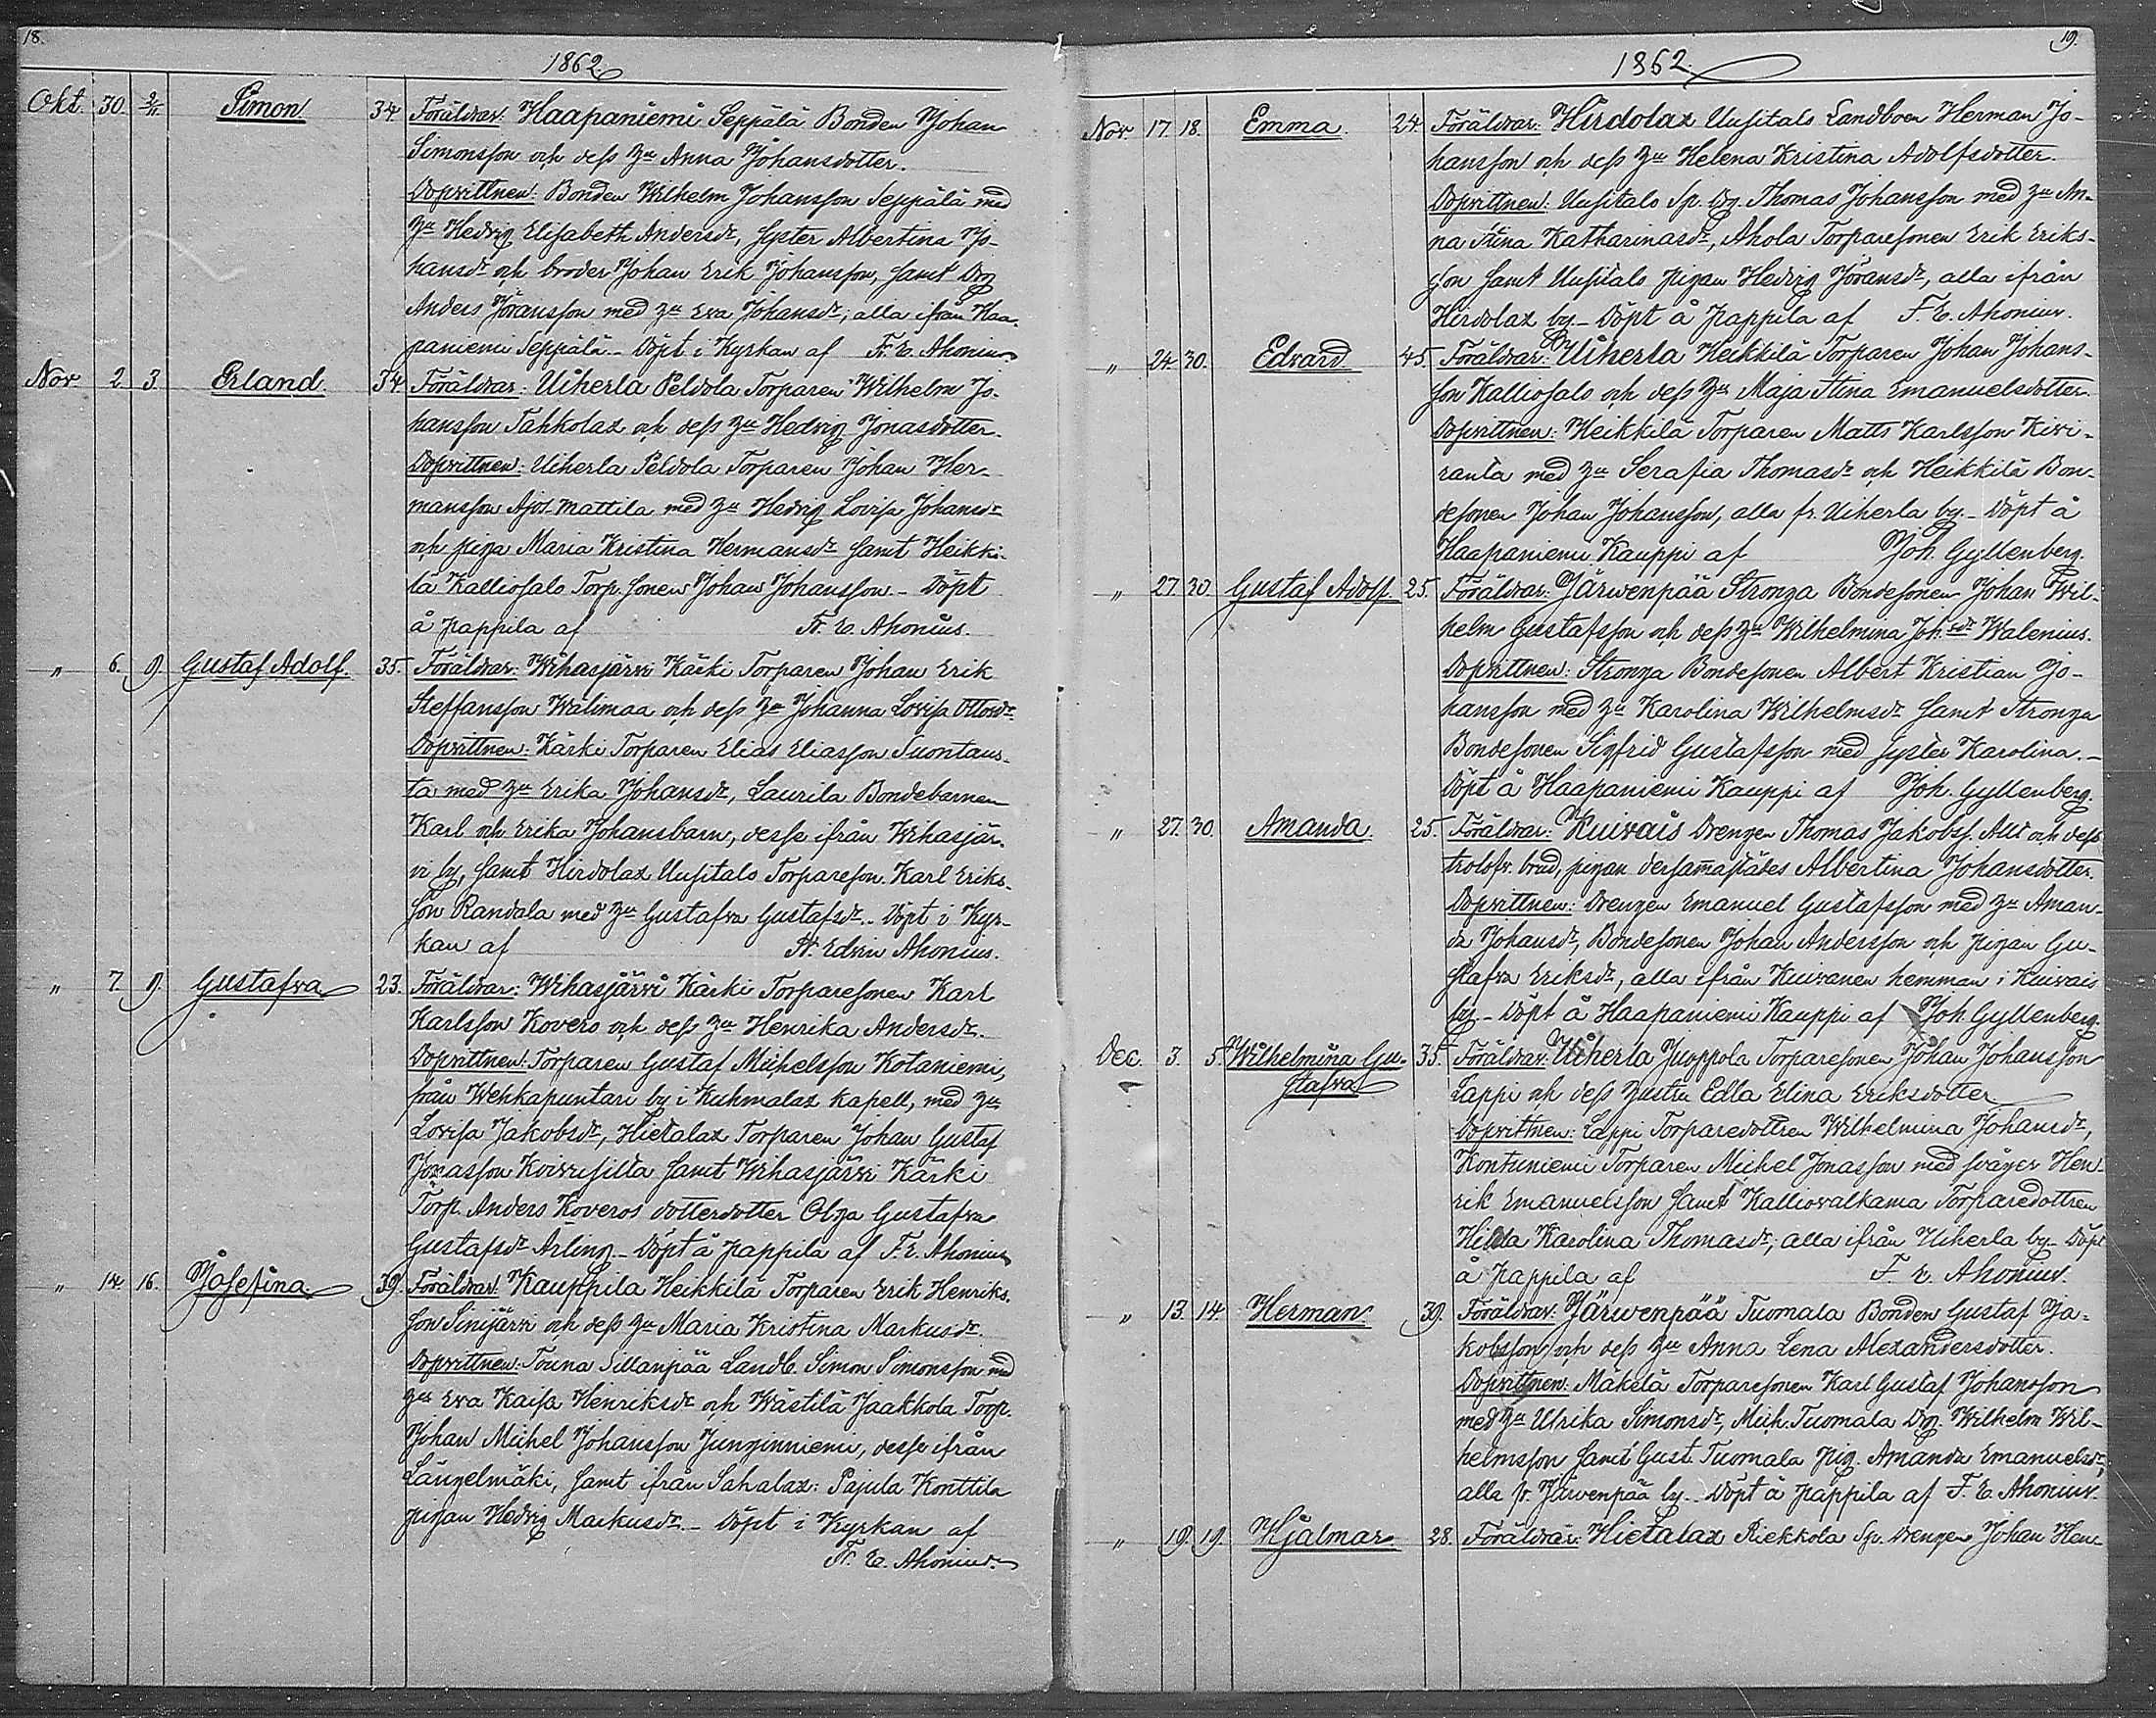 18.
1862.
Okt. 30. 2/11 Simon. 34 Föräldrar: Haapaniemi Seppälä Bonden Johan
Simonsson och dess Hu Anna Johansdotter.
Dopvittnen: Bonden Wilhelm Johansson Seppälä med
Hu Hedvig Elisabeth Andersdr, Syster Albertina Jo-
hansdr och broder Johan Erik Johansson, samt Drg
Anders Göransson med Hu Eva Johansdr, alla ifrån Haa-
paniemi Seppälä. - Döpt i Kyrkan af Fr. E. Ahonius.
Nov 2. 3. Erland. 34 Föräldrar: Uiherla Peldola Torparen Wilhelm Jo-
hansson Tahkolax och dess Hu Hedvig Jonasdotter.
Dopvittnen: Uiherla Peldola Torparen Johan Her-
mansson Ajos-Mattila med Hu Hedvig Lovisa Johansdr
och piga Maria Kristina Hermansdr samt Heikki-
lä Kalliosalo Torp. Sonen Johan Johansson. - Döpt
å Pappila af Fr. E. Ahonius.
" 6. 9. Gustaf Adolf. 35. Föräldrar: Wihasjärvi Kärki Torparen Johan Erik
Steffansson Wälimaa och dess Hu Johanna Lovisa Ottosdr.
Dopvittnen: Kärki Torparen Elias Eliasson Suontaus-
ta med Hu Erika Johansdr, Laurila Bondebarnen
Karl och Erika Johansbarn, desse ifrån Wihasjär-
vi by, samt Hirdolax Uusitalo Torpareson. Karl Eriks-
son Randala med Hu Gustafva Gustafsdr. - Döpt i Kyr-
kan af Fr. Edvin Ahonius.
" 7. 9. Gustafva 23. Föräldrar: Wihasjärvi Kärki Torparesonen Karl
Karlsson Kovero och dess Hu Henrika Andersdr.
Dopvittnen: Torparen Gustaf Michelsson Kotaniemi,
från Wehkapuntari by i Kuhmalax Kapell, med Hu
Lovisa Jakobsdr, Hietalax Torparen Johan Gustaf
Jonasson Koivusilta samt Wihasjärvi Kärki
Torp. Anders Koveros dotterdotter Olga Gustafva
Gustafsdr Arling. - Döpt å Pappila af F. E. Ahonius
" 14. 16. Josefina 39. Föräldrar: Kauppila Heikkilä Torparen Erik Henriks-
son Sinijärvi och dess Hu Maria Kristina Markusdr.
Dopvittnen: Touna Sillanpää Landb. Simon Simonsson med
Hu Eva Kaisa Henriksdr och Wästilä Jaakkola Torp.
Johan Michel Johansson Junginniemi, desse ifrån
Längelmäki, samt ifrån Sahalax: Pajula Konttila
pigan Hedvig Markusdr. - Döpt i Kyrkan af
Fr. E. Ahonius.
19.
1862.
Nov. 17. 18. Emma. 24 Föräldrar: Hirdolax Uusitalo Landboen Herman Jo-
hansson och dess Hu Helena Kristina Adolfsdotter.
Dopvittnen: Uusitalo Sp. Drg. Thomas Johansson med Hu An-
na Stina Katharinasdr, Ahola Torparesonen Erik Eriks-
son samt Uusitalo pigan Hedvig Göransdr, alla ifrån
Hirdolax by. - Döpt å Pappila af F. E. Ahonius.
" 24. 30. Edvard 45. Föräldrar: Uiherla Heikkilä Torparen Johan Johans-
son Kalliosalo och dess Hu Maja Stina Emanuelsdotter.
Dopvittnen: Heikkilä Torparen Matts Karlsson Kivi-
ranta med Hu Serafia Thomasdr och Heikkilä Bon-
desonen Johan Johansson, alla fr. Uiherla by. - Döpt å
Haapaniemi Kauppi af Joh. Gyllenberg.
" 27. 30. Gustaf Adolf. 25. Föräldrar: Järwenpää Stronga Bondesonen Johan Wil-
helm Gustafsson och dess Hu Wilhelmina Joh.sdr Walenius.
Dopvittnen: Stronga Bondesonen Albert Kristian Jo-
hansson med Hu Karolina Wilhelmsdr samt Stronga
Bondesonen Sigfrid Gustafsson med Syster Karolina. -
Döpt å Haapaniemi Kauppi af Joh. Gyllenberg.
" 27. 30. Amanda. 25. Föräldrar: Kuivais Drengen Thomas Jakobss. och dess
trolofv. brud, pigan dersammastädes Albertina Johansdotter.
Dopvittnen: Drengen Emanuel Gustafsson med Hu Aman-
da Johansdr, Bondesonen Johan Andersson och pigan Gu-
stafva Eriksdr, alla ifrån Kuivanen hemman i Kuivais
by. - Döpt å Haapaniemi Kauppi af Joh. Gyllenberg.
Dec. 3. 5. Wilhelmina Gu-
stafva 35. Föräldrar: Uiherla Juoppola Torparesonen Johan Johansson
Lappi och dess Hustru Edla Elina Eriksdotter
Dopvittnen: Lappi Torparedottren Wilhelmina Johansdr,
Kontuniemi Torparen Michel Jonasson med svåger Hen-
rik Emanuelsson samt Kalliovalkama Torparedottren
Hilda Karolina Thomasdr, alla ifrån Uiherla by. - Döpt
å Pappila af F. E. Ahonius.
" 13. 14. Herman. 39. Föräldrar: Järwenpää Tuomala Bonden Gustaf Ja-
kobsson och dess Hu Anna Lena Alexandersdotter.
Dopvittnen: Mäkelä Torparesonen Karl Gustaf Johansson
med Hu Ulrika Simonsdr, Mich. Tuomala Drg. Wilhelm Wil-
helmsson samt Gust. Tuomala pig. Amanda Emanuelsdr,
alla fr. Järvenpää by. - Döpt å Pappila af F. E. Ahonius.
" 19. 19. Hjalmar. 28. Föräldrar: Hietalax Riekkola Sp. Drengen Johan Hen-